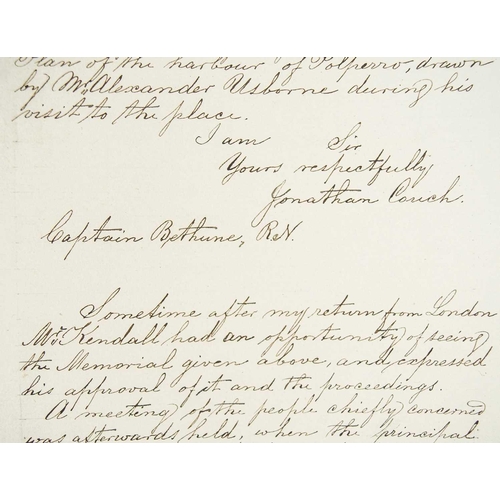 Plan of the harbour of Polperro, drawn
by Mr. Alexander Usborne during his
visit to the place.
I am Sir
Yours respectfully
Jonathan Couch.
Captain Bethune, R.N.
Sometime after my return from London
Mr. Kendall had an opportunity of seeing
the Memorial given above, and, expressed
his approval of it and the proceedings.
A meeting of the people chiefly concerned
was afterwards held, when the principal